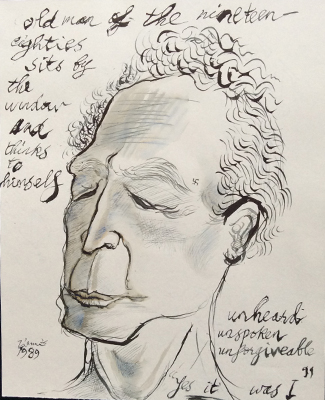 old man of the nineteen
eighties
sits by
the
window
and
thinks
to
himself
1989
unheard
unspoken
unforgiveable
"yes it was I